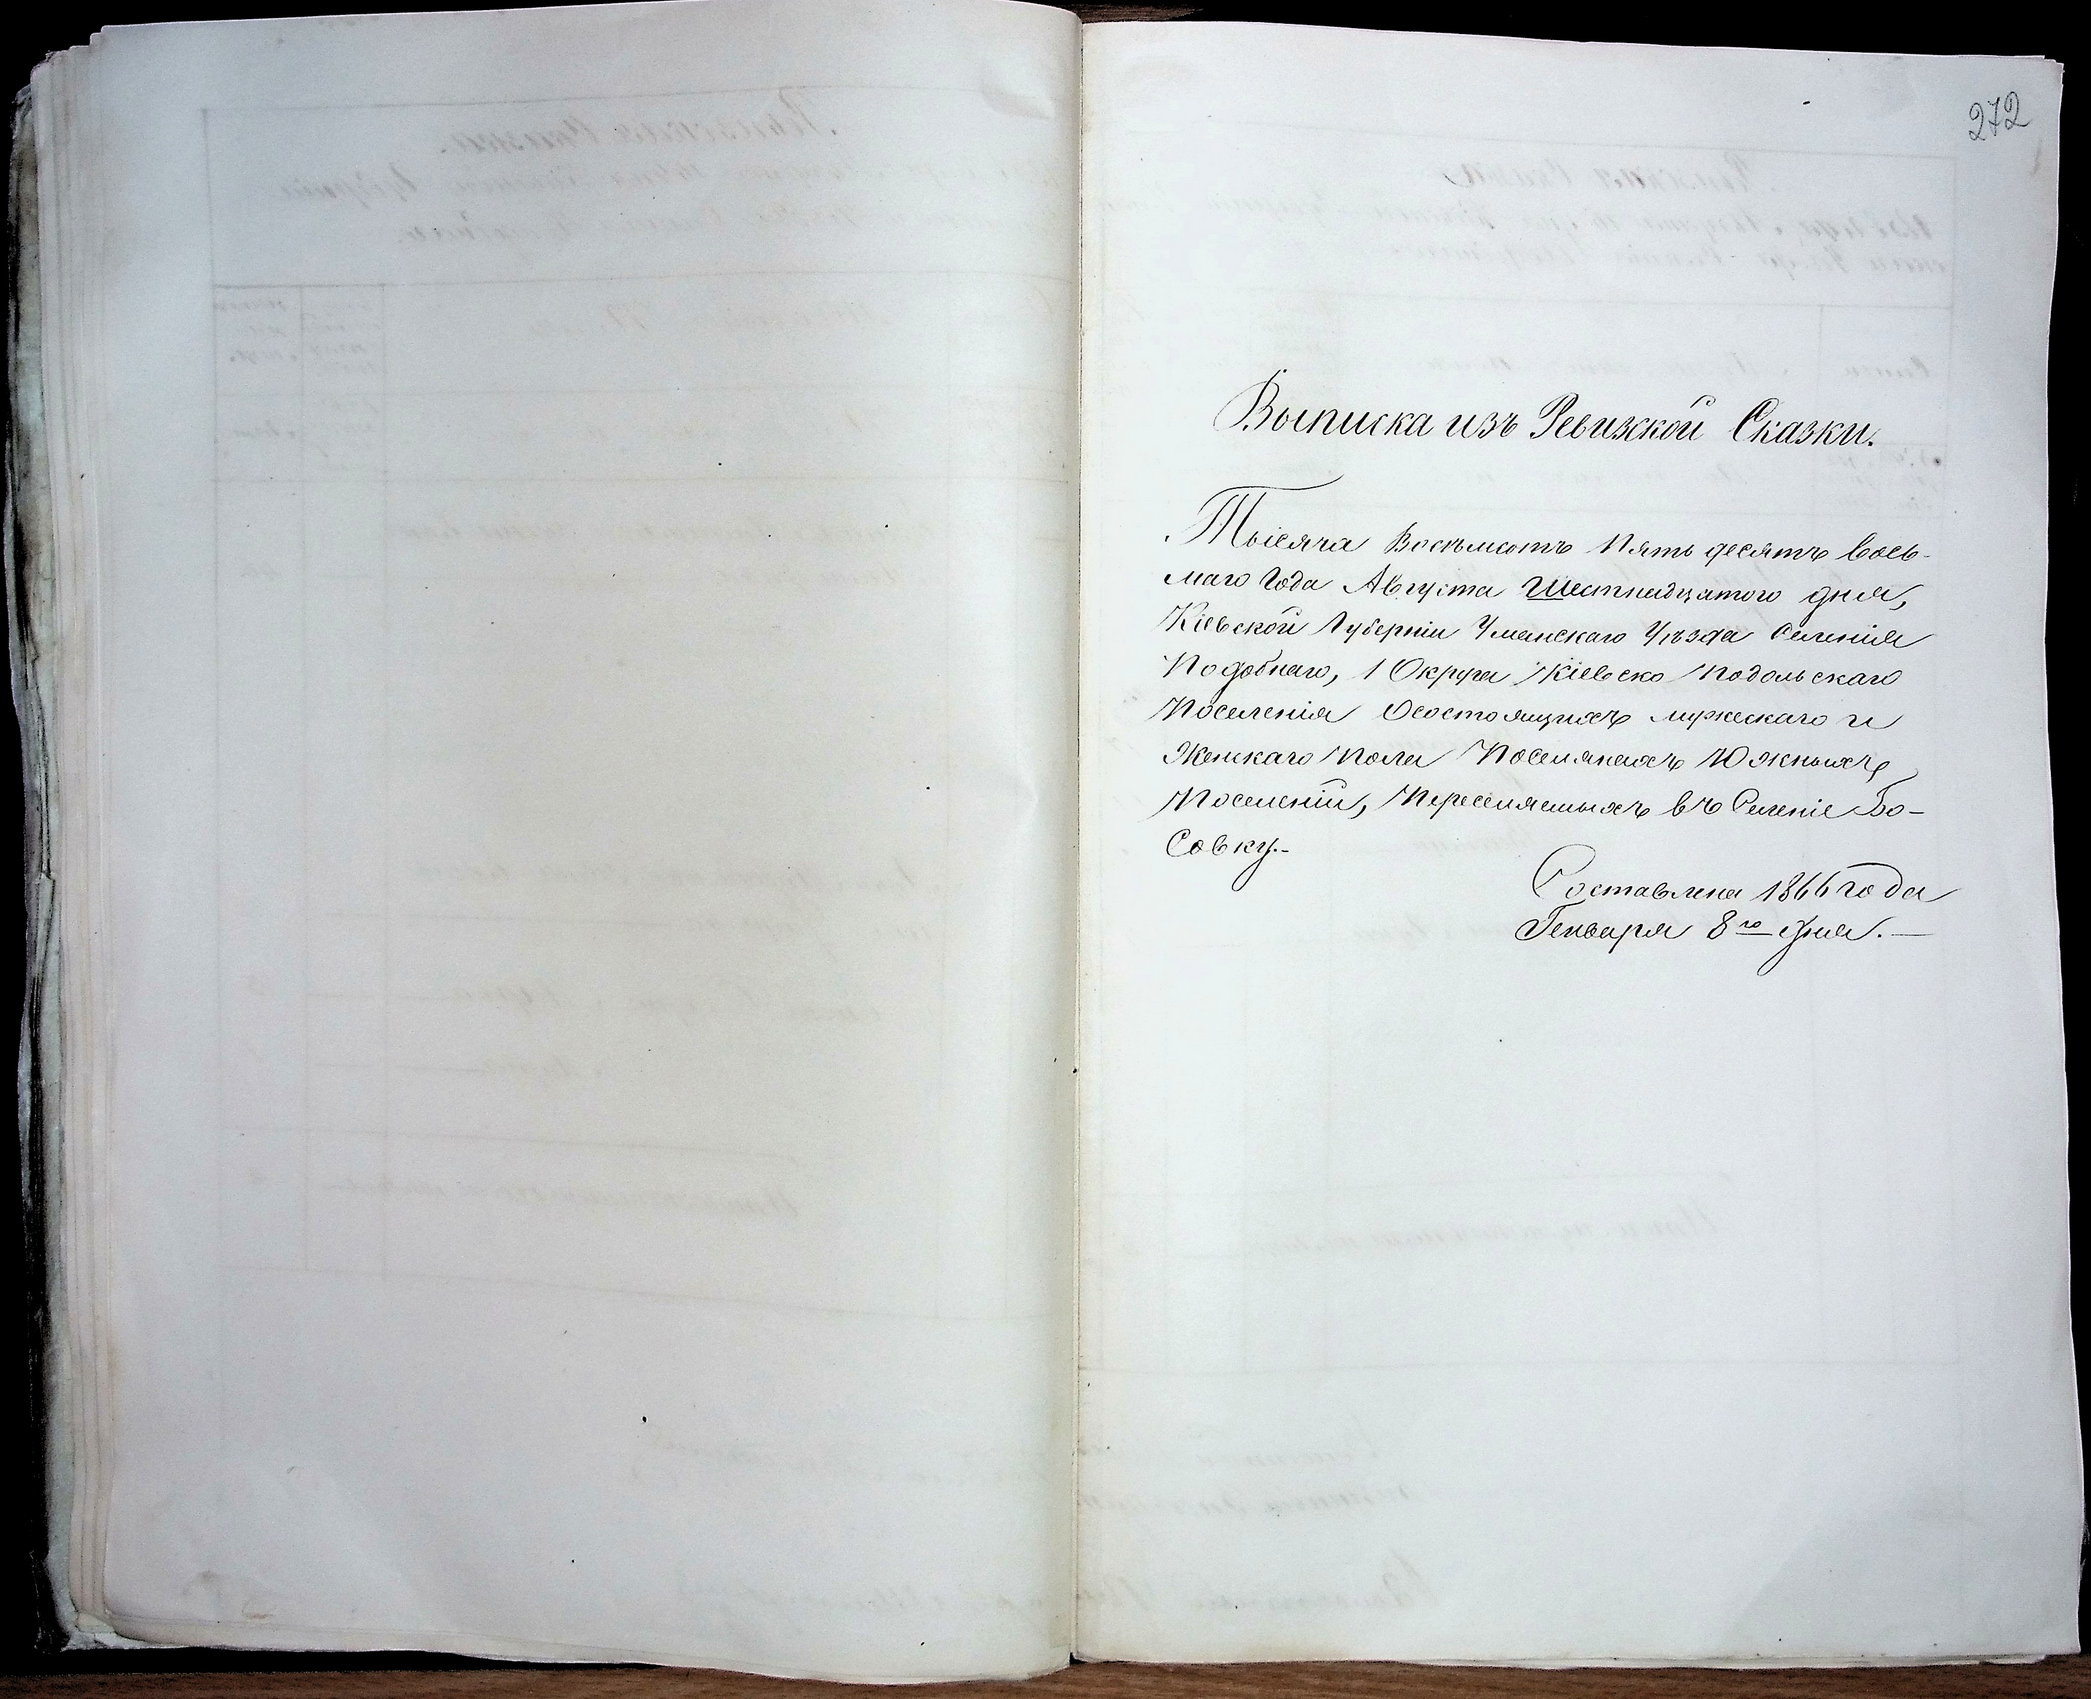 272
Выписка изъ Ревизкой Сказки.
Тысяча Восемьсотъ Пять десятъ вось-
маго Года Августа Шестнадцатого дня,
Кіевской Губерніи Уманскаго Уѣзда Селенія
Подобнаго, 1 Округа Кіевско Подольскаго
Поселенія Осостоящихъ мужескаго и
Женскаго Пола Поселянахъ Южныхъ
Поселеній, Переселяемыхъ въ Селеніе Бо-
Совку.-
Составлена 1866 года
Генваря 8го дня.—